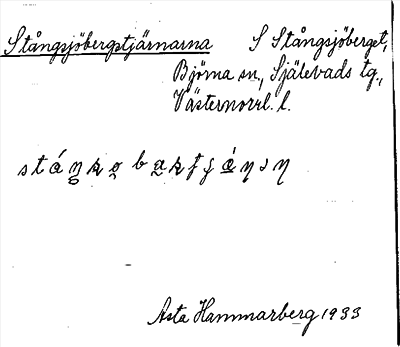 Stångsjöbergstjärnarna S Stångsjöberget,
Björna sn., Själevads tg.,
Västernorrl. l.
Asta Hammarberg 1933